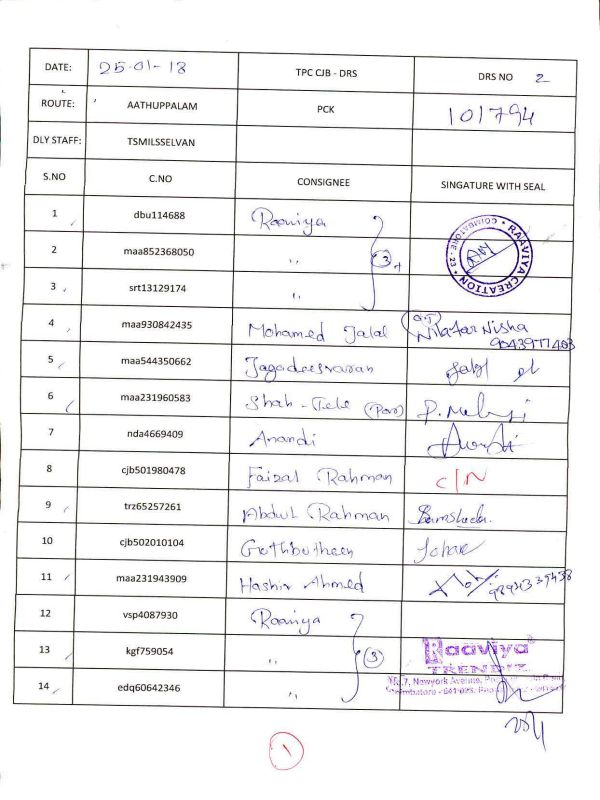 DATE: 25-01-18 TPC CJB - DRS DRS NO 2
ROUTE: AATHUPPALAM PCK 101794
DLY STAFF: TSMILSSELVAN
S.NO C.NO CONSIGNEE SINGATURE WITH SEAL
1 dbu114688 Raaviya
2 maa852368050 ,, 3
3 srt13129174 ,,
RAAVIYA CREATION * COIMBATORE - 23 *
4 maa930842435 Mohamed Jalal Nilafar Nisha
9043977403
5 maa544350662 Jagadeesvaran
6 maa231960583 Shah - Tele
7 nda4669409 Anandi
8 cjb501980478 Faizal Rahman C/N
9 trz65257261 Abdul Rahman
10 cjb502010104 Guthbutheen
11 maa231943909 Hashir Ahmed
12 vsp4087930 Raaviya
13 kgf759054 ,, 3
Raaviya
TRENDZ
7, Newyork Avenue,
Coimbatore - 641 023.
14 edq60642346 ,,
1